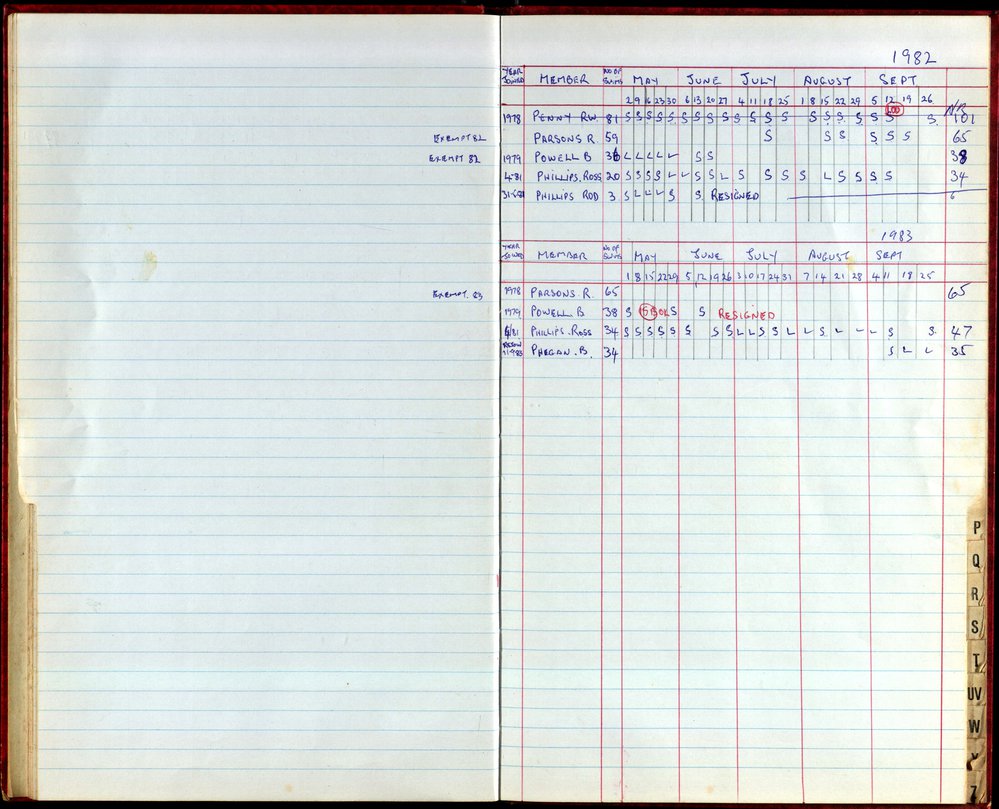 1982
YEAR JOINED MEMBER NO OF SWIMS MAY JUNE JULY AUGUST SEPT
2 9 16 23 30 6 13 20 27 4 11 18 25 1 8 15 22 29 5 12 19 26
1978 PENNY R.W. 81 S S S S S S S S S S S S S S S S S S S S 100 S N/R 101
EXEMPT 82 PARSONS R. 59 S S S S S S 65
EXEMPT 82 1979 POWELL B 36 L L L L L S S 38
4.81 PHILLIPS. ROSS 20 S S S S L L S S L S S S S L S S S S 34
PHILLIPS ROD 3 S L L L S S RESIGNED 6
1983
YEAR JOINED MEMBER NO OF SWIMS MAY JUNE JULY AUGUST SEPT
1 8 15 22 29 5 12 19 26 3 10 17 24 31 7 14 21 28 4 11 18 25
EXEMPT. 83 1978 PARSONS R. 65 65
1979 POWELL B 38 S S S RESIGNED
4/81 PHILLIPS. ROSS 34 S S S S S S S S L L S S L L S L L L S S. 47
PHEGAN. B. 34 S L L 35
P
Q
R
S
T
UV
W
Z